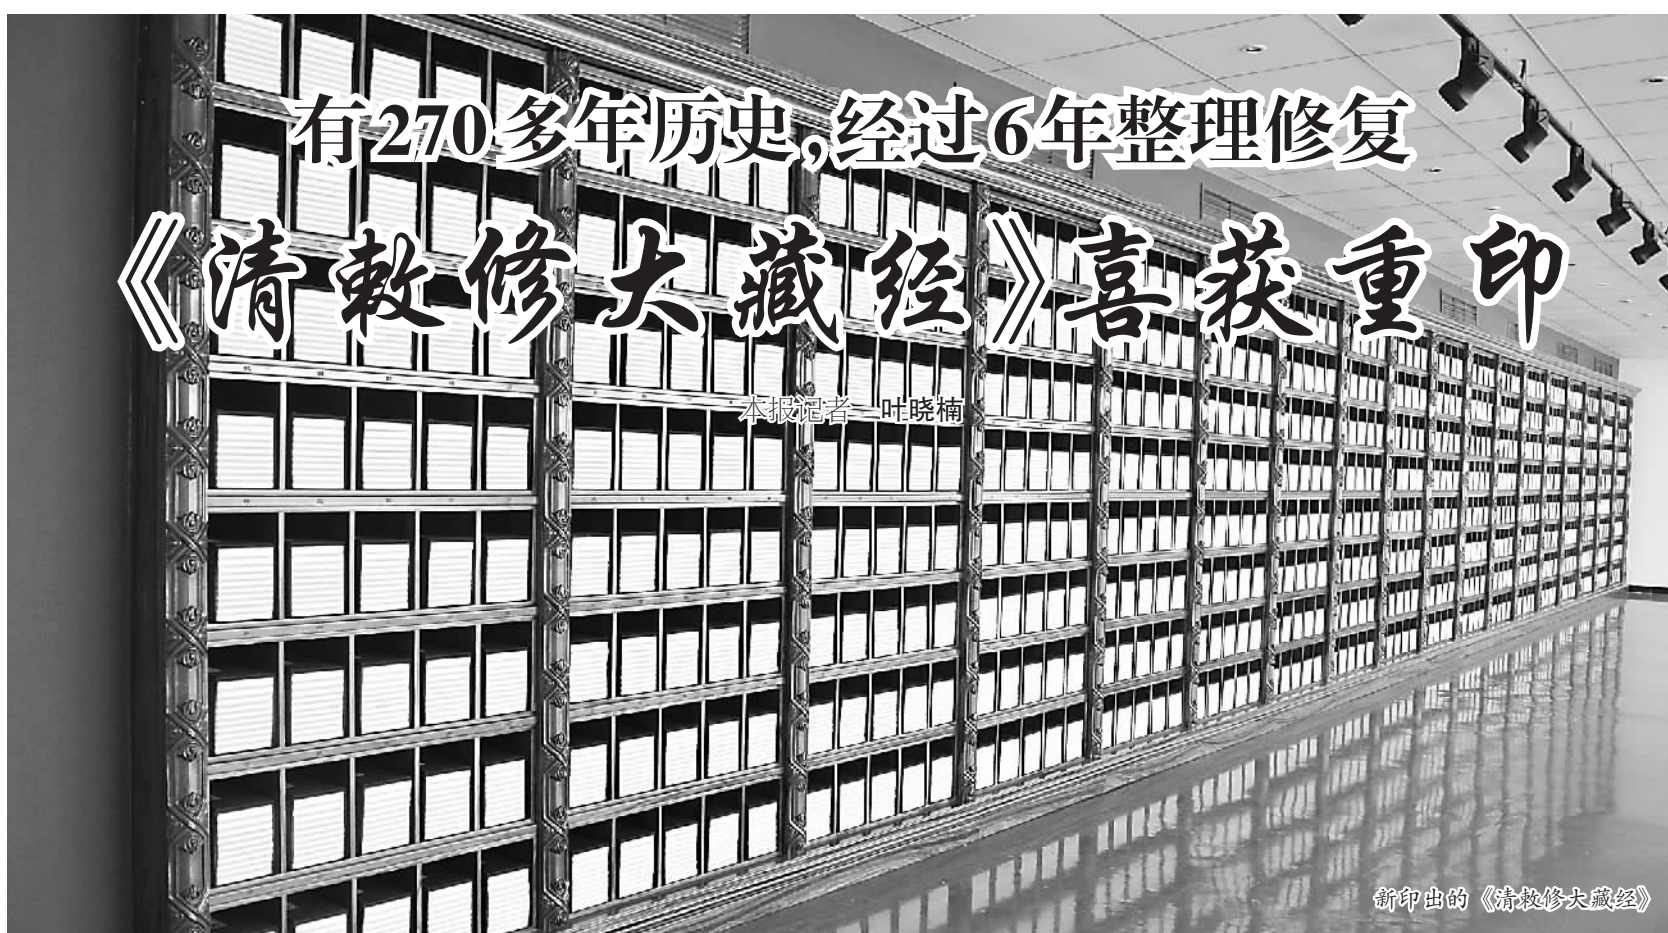 有270多年历史,经过6年整理修复
《清敕修大藏经》喜获重印
本报记者 叶晓楠
新印出的《清敕修大藏经》